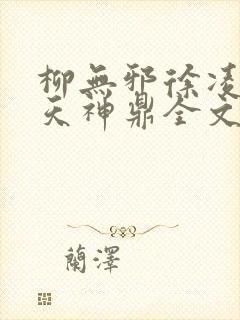 柳無邪徐凌
天神鼎全文
蘭澤